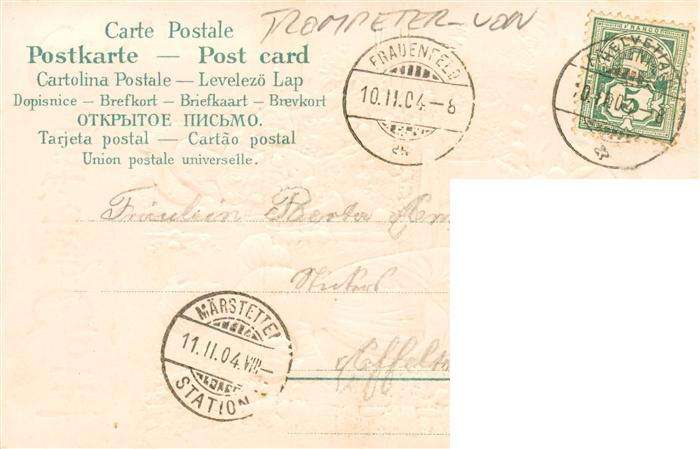 TROMPETER-VON
Carte Postale
Postkarte — Post card
Cartolina Postale — Levelezö Lap
Dopisnice — Brefkort — Briefkaart — Brevkort
ОТКРЫТОЕ ПИСЬМО.
Tarjeta postal — Cartão postal
Union postale universelle.
FRAUENFELD
10.II.04-8
HELVETIA
FRANCO
5
Fräulein Berta
MÄRSTETTEN
11.II.04.VIII-
STATION